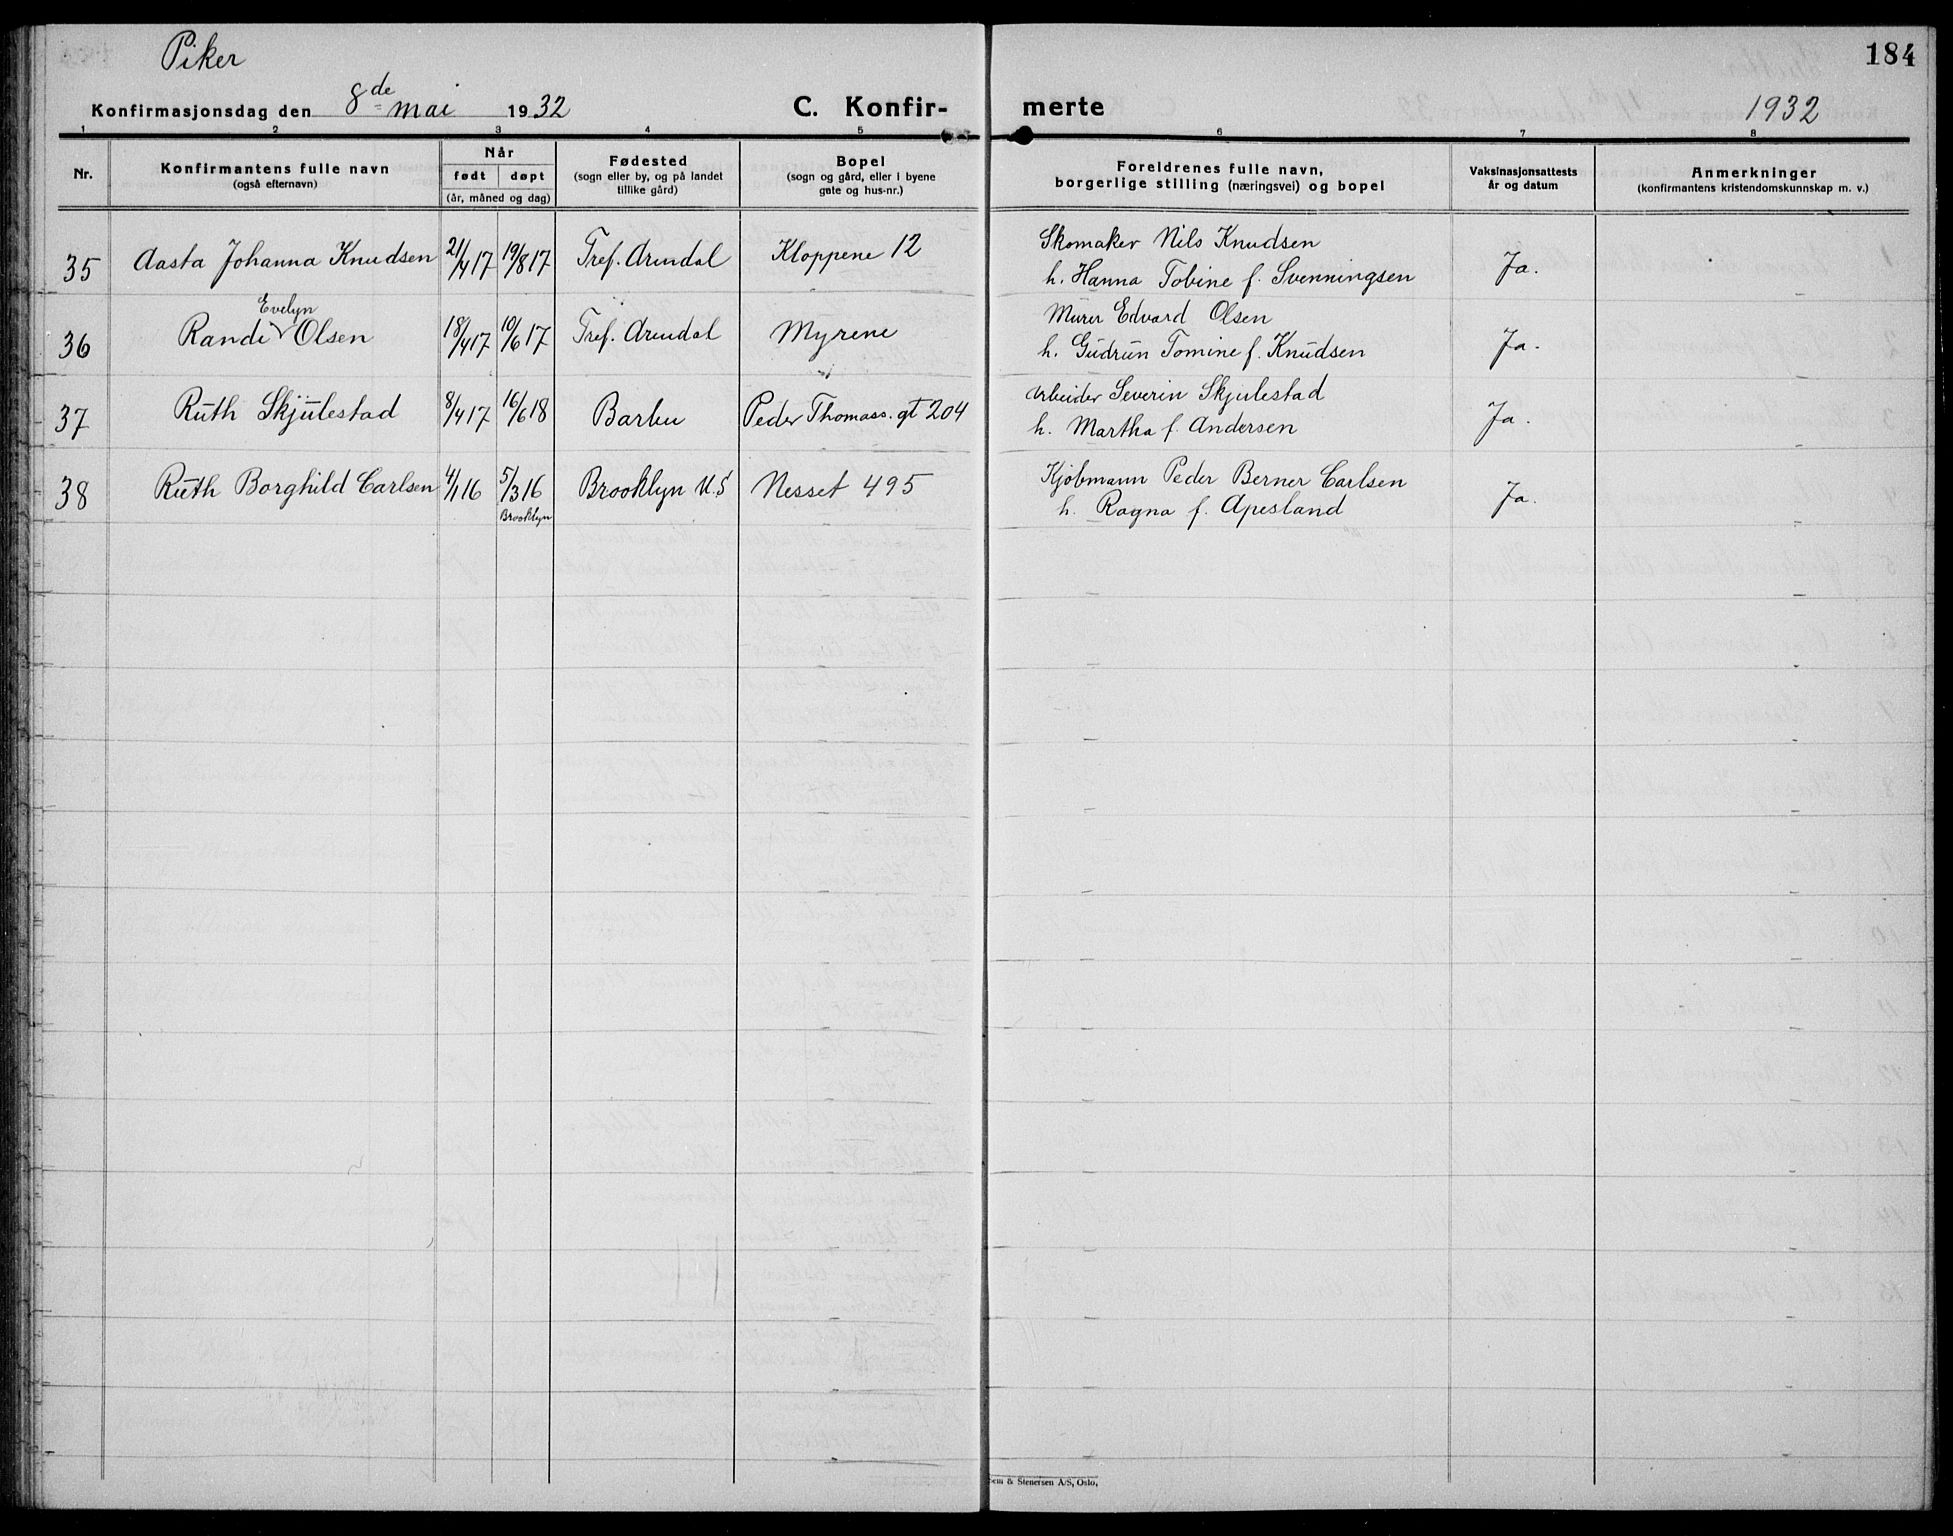 Piker
184
Konfirmasjonsdag den 8de mai 1932
C. Konfirmerte
1932
1 2 3 4 5 6 7 8
Nr.
Konfirmantens fulle navn
(også efternavn)
Når
født døpt
(år, måned og dag)
Fødested
(sogn eller by, og på landet
tillike gård)
Bopel
(sogn og gård, eller i byene
gate og hus-nr.)
Foreldrenes fulle navn,
borgerlige stilling (næringsvei) og bopel
Vaksinasjonsattests
år og datum
Anmerkninger
(konfirmantens kristendomskunnskap m. v.)
35 Aasta Johanna Knudsen 21/4 17 19/8 17 Tref. Arendal Kloppene 12 Skomaker Nils Knudsen
h. Hanna Tobine f. Svenningsen Ja.
36 Randi Evelyn Olsen 18/4 17 10/6 17 Tref. Arendal Myrene Murer Edvard Olsen
h. Gudrun Tomine f. Knudsen Ja.
37 Ruth Skjulestad 8/4 17 16/6 18 Barbu Peder Thomass. gt 204 Arbeider Severin Skjulestad
h. Martha f. Andersen Ja.
38 Ruth Borghild Carlsen 4/1 16 5/3 16 Brooklyn U.S Nesset 495 Kjøbmann Peder Berner Carlsen
Brooklyn
h. Ragna f. Apesland Ja.
Sem & Stenersen A/S, Oslo,